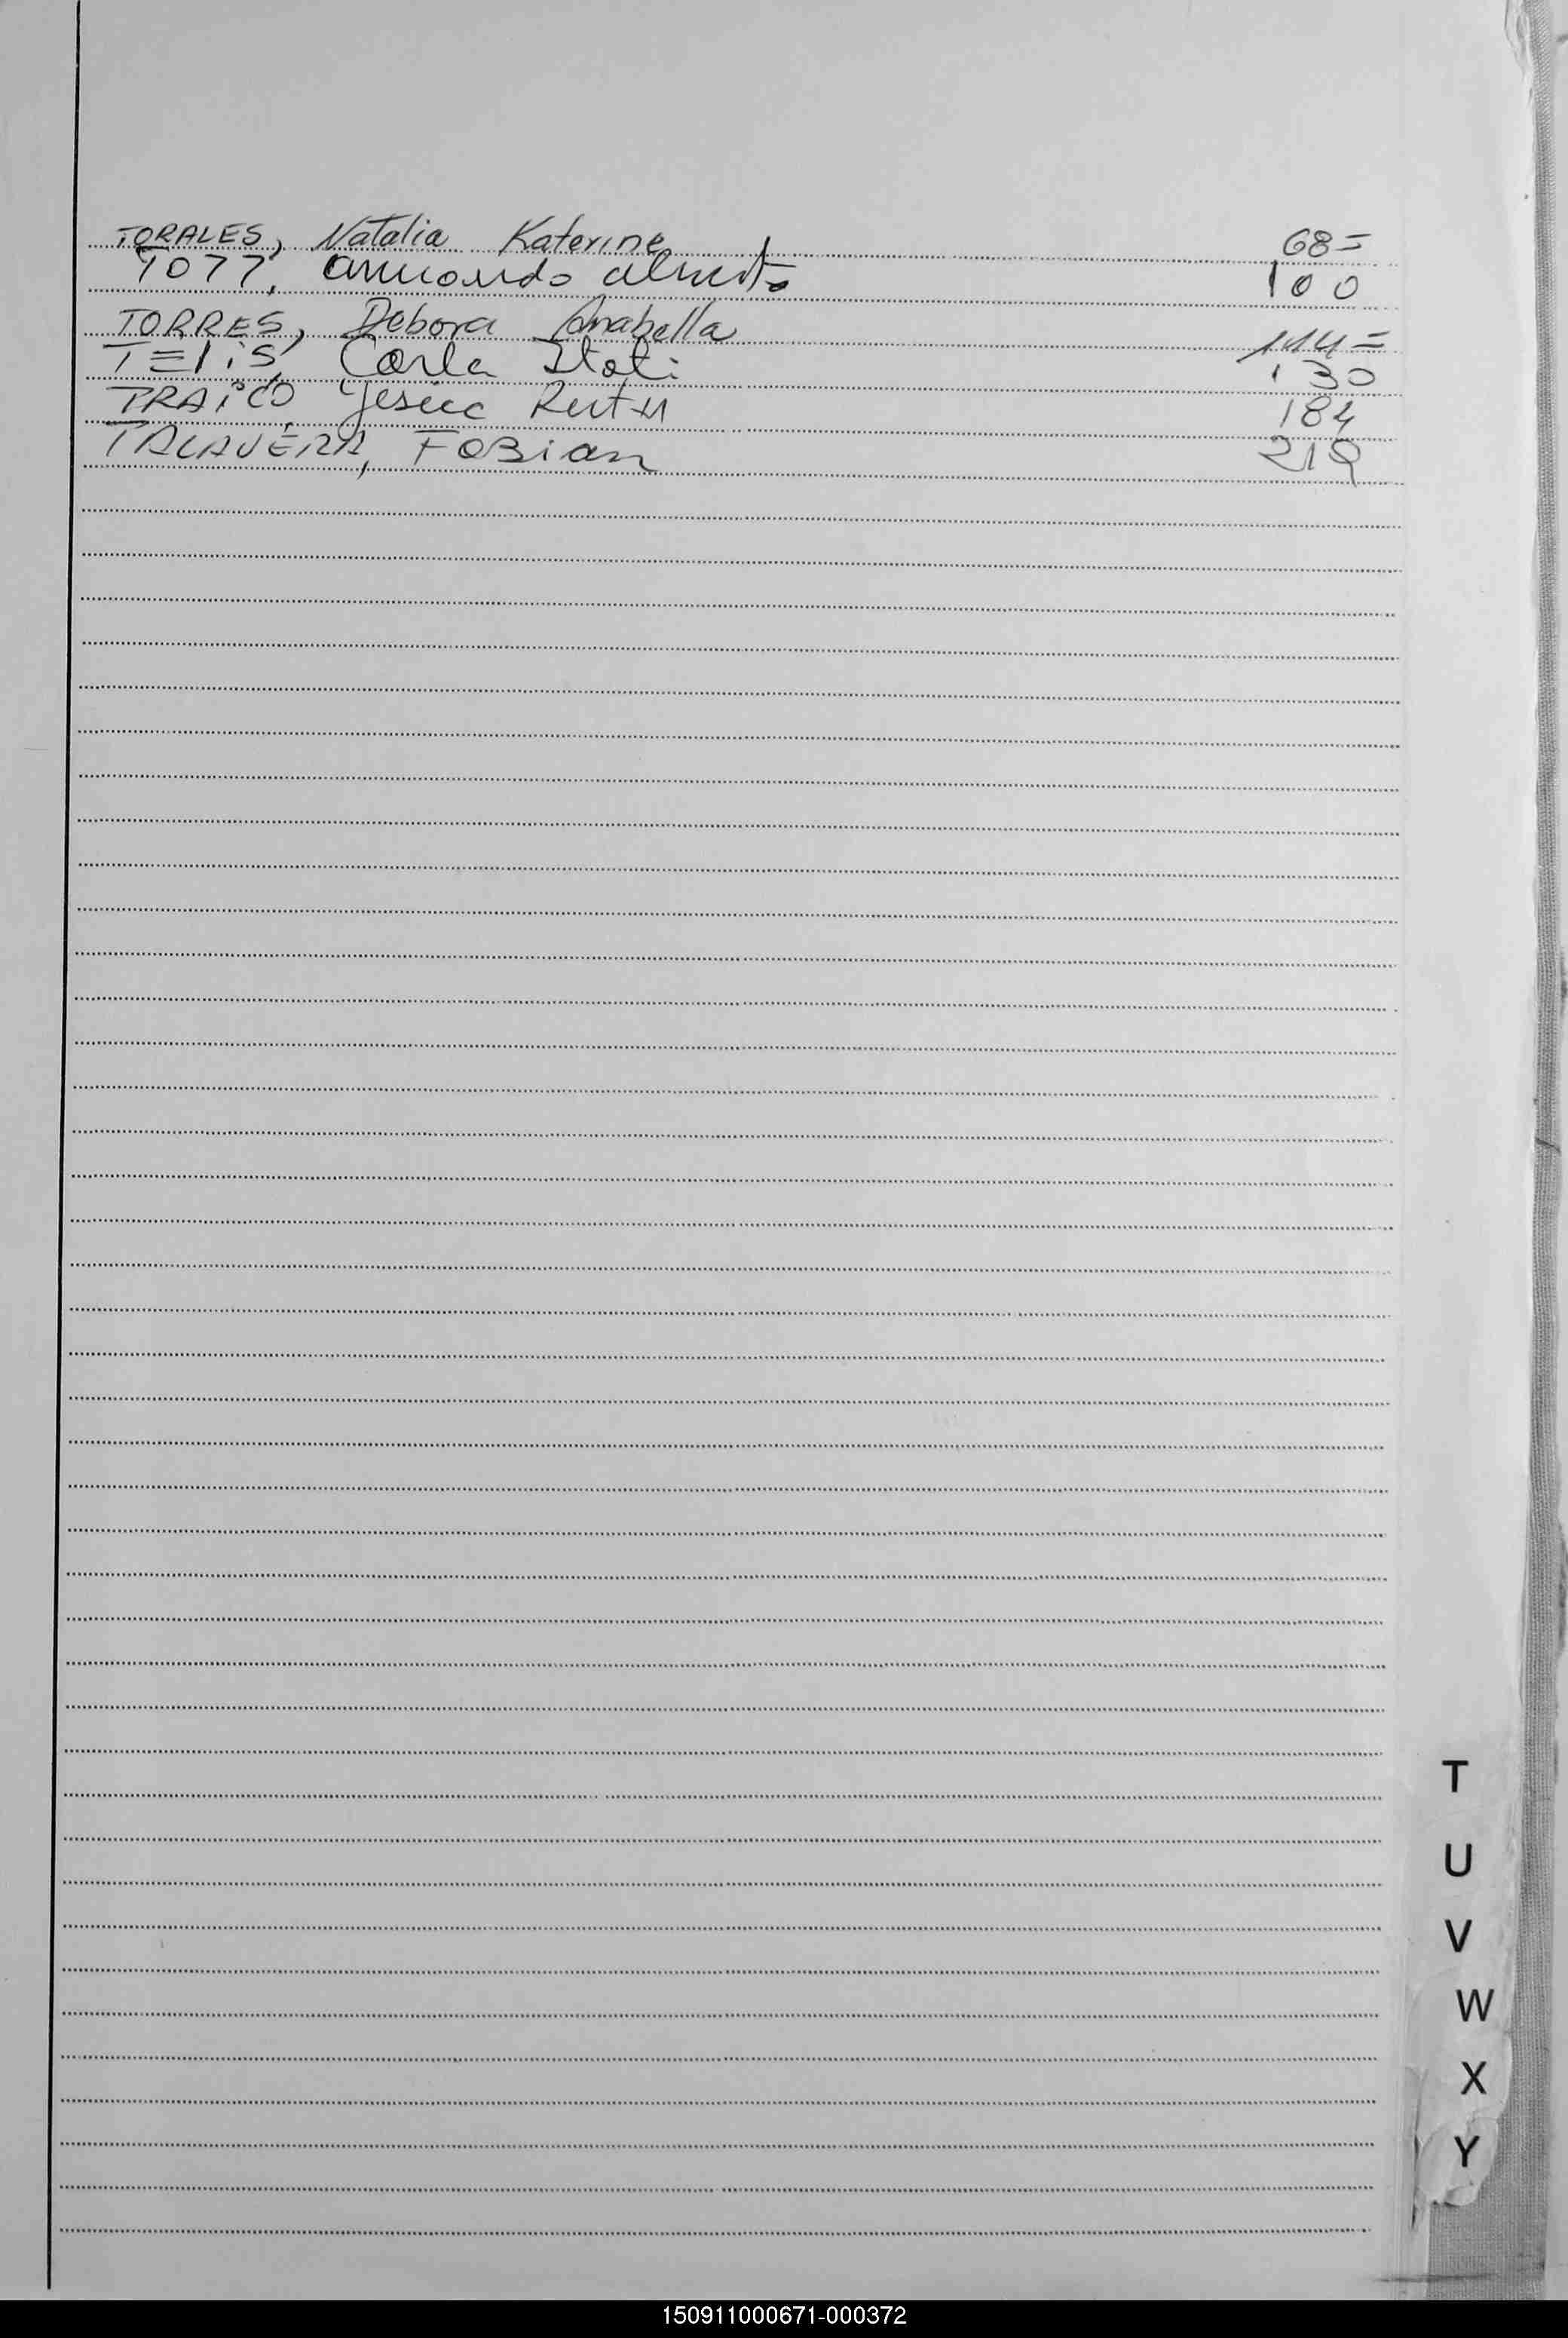 TORALES, Natalia Katerine 68=
armando alberto 100
TORRES, Debora Anabella 114=
Carla Itati 130
TRAiCO Yesica Ruth 184
TALAVERA, FABian
T
U
V
W
X
Y
150911000671-000372